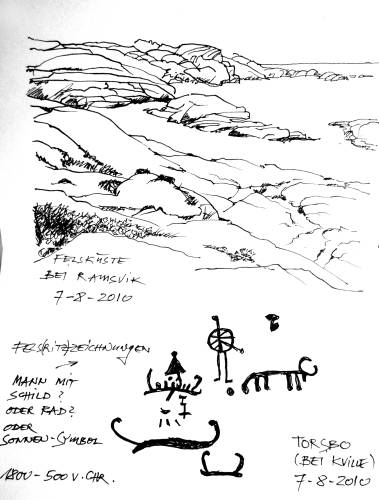 FELSKÜSTE
BEI RAMSVIK
7-8-2010
FELS(RITZ)ZEICHNUNGEN
MANN MIT
SCHILD?
ODER RAD?
ODER
SONNEN-SYMBOL
1800-500 V. CHR.
TORSBO
(BEI KVILLE)
7-8-2010